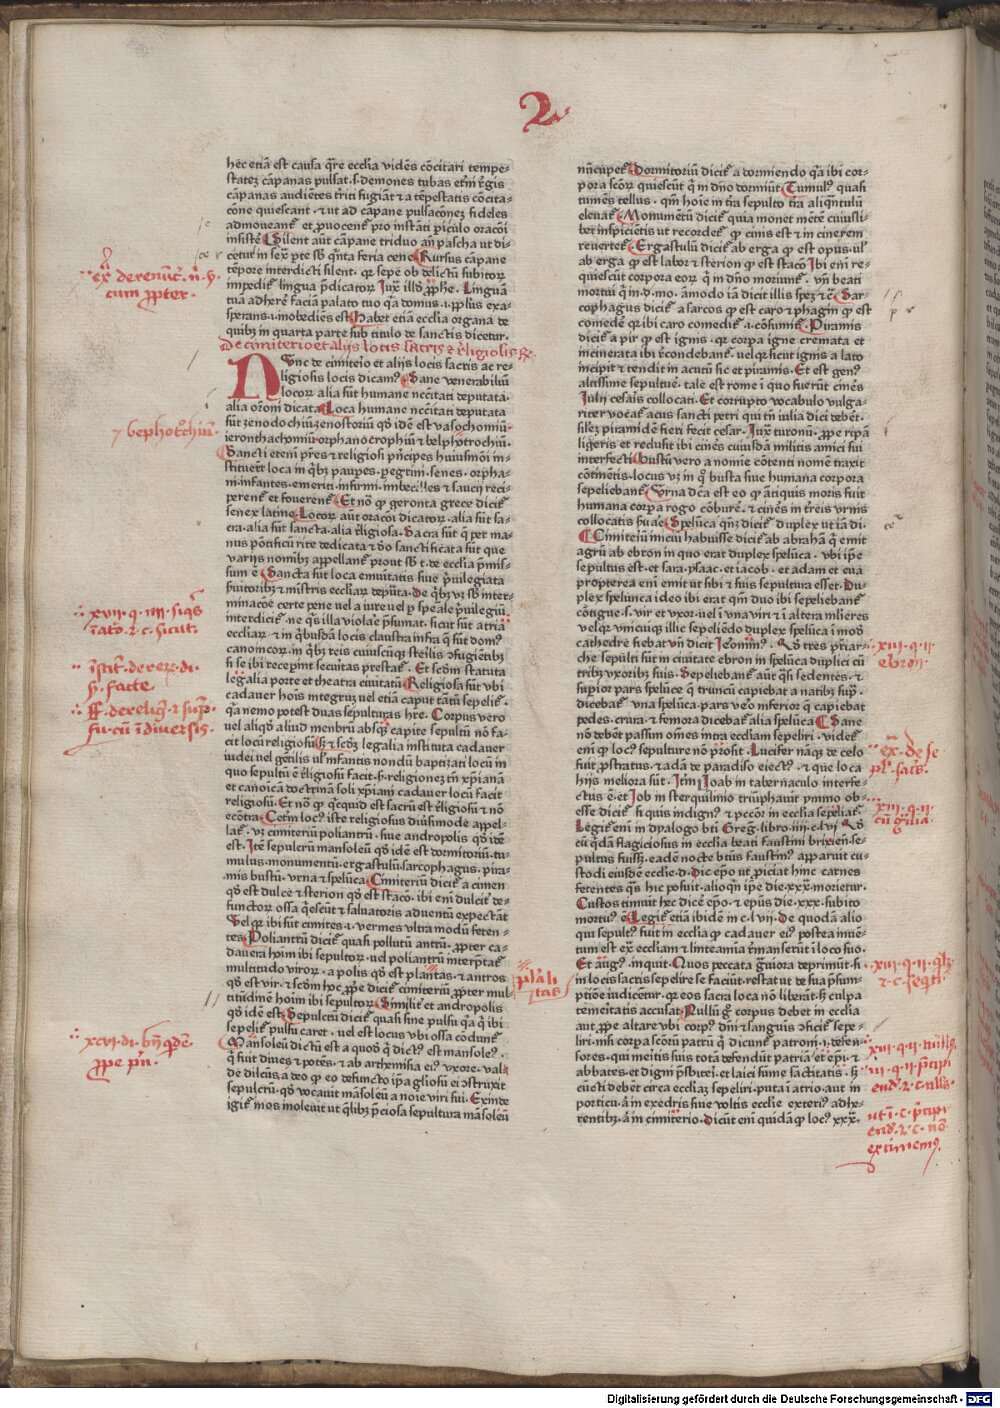 2
hec etiã est causa q̃re ecclia vidẽs cõcitari tempe-
statez cãpanas pulsat.s.demones tubas etẽrni regis
cãpanas audiẽtes tẽrriti fugiãt ⁊ a tẽpestatis cõcita-
cõne quiescant.⁊ ut ad cãpane pulsacõnez fideles
admoueant̃ et ꝓuocent̃ pro instãti piculo oracõi
insistẽ Silent aũt cãpane triduo añ pascha ut di-
cetur in sexta pte sb q̃nta feria cene Rursus cãpane
tẽpore interdicti silent. qꝛ sepe ob delictũ subitoꝝ
impedit̃ lingua p̃dicatoꝝ Jux̃ illđ ꝓph̃e. Linguã
tuã adherẽ faciã palato tuo q̃a domus.i.pplus exa-
sperans.i.inobediẽs est Habet etiã ecclia organa de
quibꝫ in quarta parte sub titulo de sanctis dicetur.
De cimiterio et alijs locis sacris ⁊ religiosis
Nunc de cimiterio et alijs locis sacris ac re-
ligiosis locis dicam⁹ Sane venerabiliũ
locoꝝ alia sũt humane necc̃itati deputata.
alia oroni dicata Loca humane necc̃itati deputata
sũt zenodochiũ zenostoriũ qđ idẽ est vasochomiũ
ierontha chomiũ orphanotrophiũ ⁊ belphotrochiũ.
Sancti etenĩ pr̃es ⁊ religiosi p̃ncipes huiusmõi in-
stituerũt loca in q̃bꝫ paupes.pegrini.senes.orpha-
ni.infantes.emeriti.infirmi.imbecilles ⁊ saucij reci-
perent̃ et fouerent̃ Et nõ ꝙ geronta grece dicit̃
senex latine. Locoꝝ aũt oracõi dicatoꝝ.alia sũt sa-
cra.alia sũt sancta.alia r̃ligiosa. Sacra sũt q̃ per ma-
nus põtificũ rite dedicata ⁊ deo sanctificata sũt que
varijs nomibꝫ appellant̃ prout sb t̃.de ecclia p̃mis-
sum ẽ Sancta sũt loca emuitatis siue p̃uilegiata
suitoribꝫ ⁊ mistris eccliaꝝ deputa. De q̃bꝫ vꝫ sb inter-
minacõe certe pene vel a iure uel ꝑ speciale p̃uilegiũ
interdicit̃ ne q̃s illa violare p̃sumat.sicut sũt atria
eccliaꝝ ⁊ in q̃busdã locis claustra infra q̃ sũt dom⁹
canonicoꝝ.in q̃bꝫ reis cuiuscũqꝫ sceleris cõfugiẽtibꝫ
si se ibi recepint securitas prestat̃. Et scđm statuta
legalia porte et theatra ciuitatũ Religiosa sũt vbi
cadauer hois integruꝫ uel etiã caput tãtũ sepelit̃.
q̃a nemo potest duas sepulturas hr̃e. Corpus vero
uel aliqđ aliud menbrũ absqꝫ capite sepultũ nõ fa-
cit locũ religiosũ ꝫ scđꝫ legalia instituta cadauer
iudei uel gẽtilis ul̃ infantis nondũ baptizati locũ in
quo sepultũ ẽ r̃ligiosũ facit.ꝫ religionez tñ xp̃ianã
et canoicã doctrinã soli xp̃iani cadauer locũ facit
religiosũ. Et nõ ꝙ q̃cqud est sacrũ est r̃ligiosũ ⁊ nõ
econtra. Cetm loc⁹ iste religiosus diũsimode appel-
lat̃. vꝫ cimiteriũ poliantrũ.siue andropolis qđ idẽ
est. Itẽ sepulcrũ mansoleũ qđ idẽ est dormitoriũ.tu-
mulus.monumẽtũ.ergastulũ.sarcophagus.pira-
mis bustũ.vrna ⁊ spelũca Cimiteriũ dicit̃ a cimen
qđ est dulce ⁊ sterion qđ est stacõ. ibi enĩ dulcit̃ de-
functoꝝ ossa q̃escũt ⁊ saluatoris aduentũ expectãt
Vel qꝛ ibi sũt cimites.i.vermes vltra modũ feten-
tes. Poliantrũ dicit̃ quasi pollutũ antrũ.ꝓpter ca-
dauera hoim ibi sepultoꝝ.uel poliantrũ interp̃tat̃
multitudo viroꝝ.a polis qđ est plantas.⁊ antros
qđ est vir.⁊ scđm hoc ꝓpe dicit̃ cimiteriũ ꝓpter mul-
titudinẽ hoim ibi sepultoꝝ Similit̃ et andropolis
qđ idẽ est Sepulcrũ dicit̃ quasi sine pulsu q̃a q̃ ibi
sepelit̃ pulsu caret.uel est locus vbi ossa cõdunt̃
Mãsoleũ dictũ est a quođ q̃ dict⁹ est mansole⁹.
q̃ fuit diues ⁊ potẽs.⁊ ab arthimisia ei⁹ vxore.vald̃
de dilc̃us.a deo ꝙ eo defuncto ip̃a gliosũ ei cõstruxit
sepulcrũ.qđ vocauit mãsoleũ a noie viri sui. Exinde
igit̃ mos inoleuit ut q̃libꝫ p̃ciosa sepultura mãsoleũ
nũcupet̃ Dormitoriũ dicit̃ a dormiendo q̃a ibi cor-
pora scõꝝ quiescũt q̃ in dño dormiũt Tumul⁹ quasi
tumẽs tellus.qm̃ hoĩe in tra sepulto tra aliq̃ntulũ
eleuat̃ Monumẽtũ dicit̃ quia monet mẽtẽ cuiusli-
bet inspiciẽtis ut recordet̃ ꝙ cinis est ⁊ in cinerem
reuertet̃ Ergastulũ dicit̃ ab erga ꝙ est opus.ul̃
ab erga ꝙ est labor ⁊ sterion ꝙ est stacõ Ibi enĩ re-
quiescũt corpora eoꝝ q̃ in dño moriunt̃. vñ beati
mortui q̃ in.d.mo.ãmodo iã dicit illis spẽz ⁊ c̃ Sar-
cophagus dicit̃ a sarcos ꝙ est caro ⁊ phagin ꝙ est
comedẽ qꝛ ibi caro comedit̃.i.cõsumit̃. Piramis
dicit̃ a pir ꝙ est ignis.qꝛ corpa igne cremata et
incinerata ibi r̃condebant̃ uel qꝛ sicut ignis a lato
incipit ⁊ tendit in acutũ sic et piramis. Et est gen⁹
altissime sepulture.tale est rome i quo fuerũt cinẽs
Julij cesaris collocati. Et corrupto vocabulo vulga-
riter vocat̃ acus sancti petri qui tñ iulia dici debet.
siles piramidẽ fieri fecit cesar. Jux̃ turonũ.ꝓpe ripã
ligeris et reclusit ibi cinẽs cuiusdã militis amici sui
interfecti Bustũ vero a nomie cõtenti nomẽ traxit
cõtinẽtis.locus vꝫ in q̃ busta siue humana corpora
sepeliebant̃ Vrna dcã est eo ꝙ ãtiquis moris fuit
humana corpa rogo cõburẽ.⁊ cinẽs in terreis vrnis
collocatis seruare Spelũca q̃nꝫ dicit̃ duplex ut iã di.
Cimiteriũ iniciũ habuisse dicit̃ ab abrahã q̃ emit
agrũ ab ebron in quo erat duplex spelũca.vbi ip̃e
sepultus est.et sara.ysaac.et iacob.et adam et eua
propterea enĩ emit ut sibi ⁊ suis sepultura esset. Du-
plex spelũnca ideo ibi erat qm̃ duo ibi sepeliebant̃
cõtigue.s.vir et vxor.uel ĩ vna viri ⁊ ĩ altera mlieres
uel qꝛ vnicuiqꝫ illic sepeliẽdo duplex spelũca ĩ modũ
cathedre fiebat vñ dicit Jeõnim⁹. Qđ tres p̃riar-
che sepulti sũt in ciuitate ebron in spelũca duplici cũ
tribꝫ vxoribꝫ suis. Sepeliebant̃ aũt q̃si sedentes.⁊
supior pars spelũce q̃ truncũ capiebat a natibꝫ sup̃.
dicebat̃ vna spelũca.pars v̾o inferior q̃ capiebat
pedes.crura.⁊ femora dicebat̃ alia spelũca Sane
nõ debẽt passim om̃es intra eccliam sepeliri.videt̃
enĩ ꝙ loc⁹ sepulture nõ prosit. Lucifer nãqꝫ de celo
fuit ꝓstratus.⁊ adã de paradiso eiect⁹.⁊ que loca
hijs meliora sũt. Itm̃ Joab in tabernaculo interfe-
ctus ẽ.et Job in sterquilinio triũphauit ymmo ob-
esse dicit̃ si quis indign⁹ ⁊ peccõr in ecclia sepeliat̃.
Legit̃ enĩ in dyalogo bti Greg.libro.iiij.c.lvj Qđ
cũ q̃dã flagiciosus in ecclia beati faustini brixieñ.se-
pultus fuisset.eadẽ nocte btũs faustin⁹ apparuit cu-
stodi eiusdẽ ecclie.d.Dic ep̃o ut ꝓiciat hinc carnes
fetentes q̃s hic posuit.alioq̃n ip̃e die.xxx.morietur.
Custos timuit hec dicẽ ep̃o.⁊ ep̃us die.xxx.subito
mortu⁹ ẽ Legit̃ etiã ibidẽ in c.lvij. De quodã alio
qui sepult⁹ fuit in ecclia ꝙ cadauer ei⁹ postea inuẽ-
tum est ex̃ eccliam ⁊ linteamĩa r̃manserũt ĩ loco suo.
Et aug⁹.inquit. Quos peccata grauiora deprimũt.si
in locis sacris sepelire se faciũt.restat ut de sua p̃sum-
ptiõe iudicent̃.qꝛ eos sacra loca nõ liberãt.ꝫ culpa
temeritatis accusat. Nullũ g̃ corpus debet in ecclia
aut ꝓpe altare vbi corp⁹ dñi ⁊ sanguis cõficit̃ sepe-
liri.nisi corpa scõrũ patrũ q̃ dicunt̃ patroni.i.defen-
sores.qui meritis suis totã defendũt patriã.et ep̃i.⁊
abbates.et digni p̃sbiteri.et laici sũme sãctitatis.ꝫ
cũcti debẽt circa eccliaꝫ sepeliri.puta ĩ atrio.aut in
porticu.ã in exedris siue voltis ecclie exteri⁹ adhe-
rentibꝫ.ã in cimiterio.dicũt enĩ quidã ꝙ loc⁹ xxx.
ex̃ de renunc̃.ñ.ꝫ.
cum ꝓpter.
⁊ bephotrochiũ.
xvij.q.iiij.siq̃s
ĩ atõ.⁊.c.sicut.
ĩstit̃.de reꝝ.di.
ꝫ.sacre
ff.de relig̃.⁊ sump̃.
fu.cũ ĩ diuersis.
xcvj.di.bñ q̃dẽ.
ꝓpe pñ.
plãli
tas
xiij.q.ij
ebron.
ex̃.de se
pl̃.sacris.
xiij.q.ij
cũ g̃uia
xiij.q.ij.q̃bꝫ
⁊.c.seq̃ti
xiij.q.ij.nullꝰ.
vi.q.ij.p̃cipi
end̃.⁊.c.nllꝰ.
ut ĩ.c.p̃cipi
end̃.⁊.c.nõ
extimem⁹.
Digitalisierung gefördert durch die Deutsche Forschungsgemeinschaft - DFG